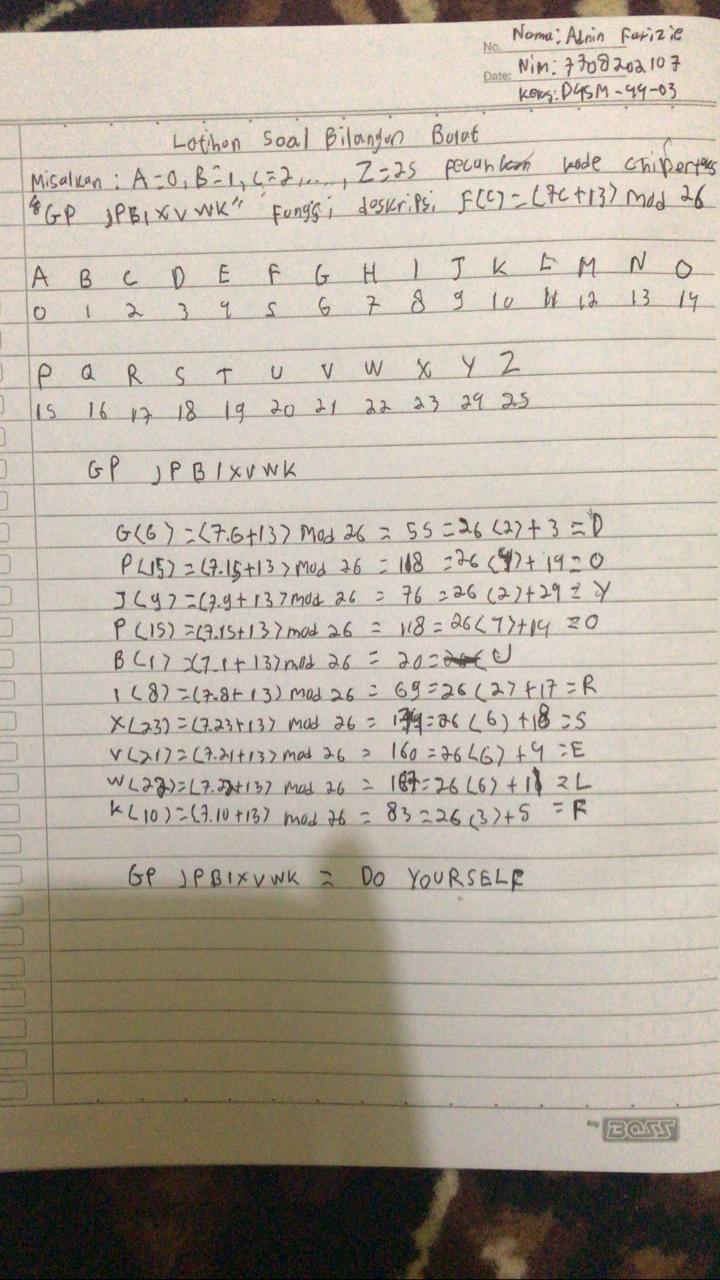 Nama: Adnin Farizie
No.
Nim: 7708202107
Date:
Kelas: D4SM-44-03
Latihan Soal Bilangan Bulat
Misalkan : A=0, B=1, C=2 ...., Z=25 pecahkan kode Chiperteks
"GP JPBIXVWK" Fungsi deskripsi F(C) = (7C+13) mod 26
A B C D E F G H I J K L M N O
0 1 2 3 4 5 6 7 8 9 10 11 12 13 14
P Q R S T U V W X Y Z
15 16 17 18 19 20 21 22 23 24 25
GP JPBIXVWK
G(6) = (7.6+13) Mod 26 = 55 = 26 (2) + 3 = D
P(15) = (7.15+13) Mod 26 = 118 = 26 (4) + 14 = O
J(9) = (7.9+13) mod 26 = 76 = 26 (2) + 24 = Y
P(15) = (7.15+13) mod 26 = 118 = 26 (4) + 14 = O
B(1) = (7.1+13) mod 26 = 20 = U
I(8) = (7.8+13) mod 26 = 69 = 26 (2) + 17 = R
X(23) = (7.23+13) mod 26 = 174 = 26 (6) + 18 = S
V(21) = (7.21+13) mod 26 = 160 = 26 (6) + 4 = E
W(22) = (7.22+13) mod 26 = 167 = 26 (6) + 11 = L
K(10) = (7.10+13) mod 26 = 83 = 26 (3) + 5 = F
GP JPBIXVWK = DO YOURSELF
BOSS